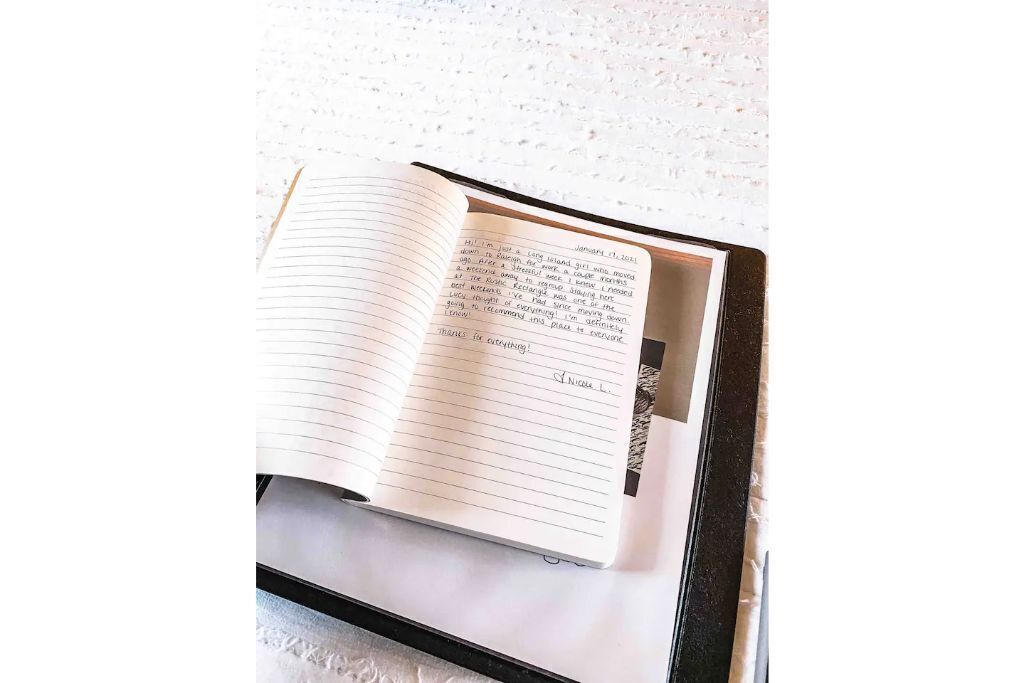 January 17, 2021
Hi! I'm just a Long Island girl who moved
down to Raleigh for work a couple months
ago. After a stressful week I knew I needed
a weekend away to regroup. Staying here
at The Rustic Rectangle was one of the
best weekends I've had since moving down.
Lucy thought of everything! I'm definitely
going to recommend this place to everyone
I know!
Thanks for everything!
Nicole L.